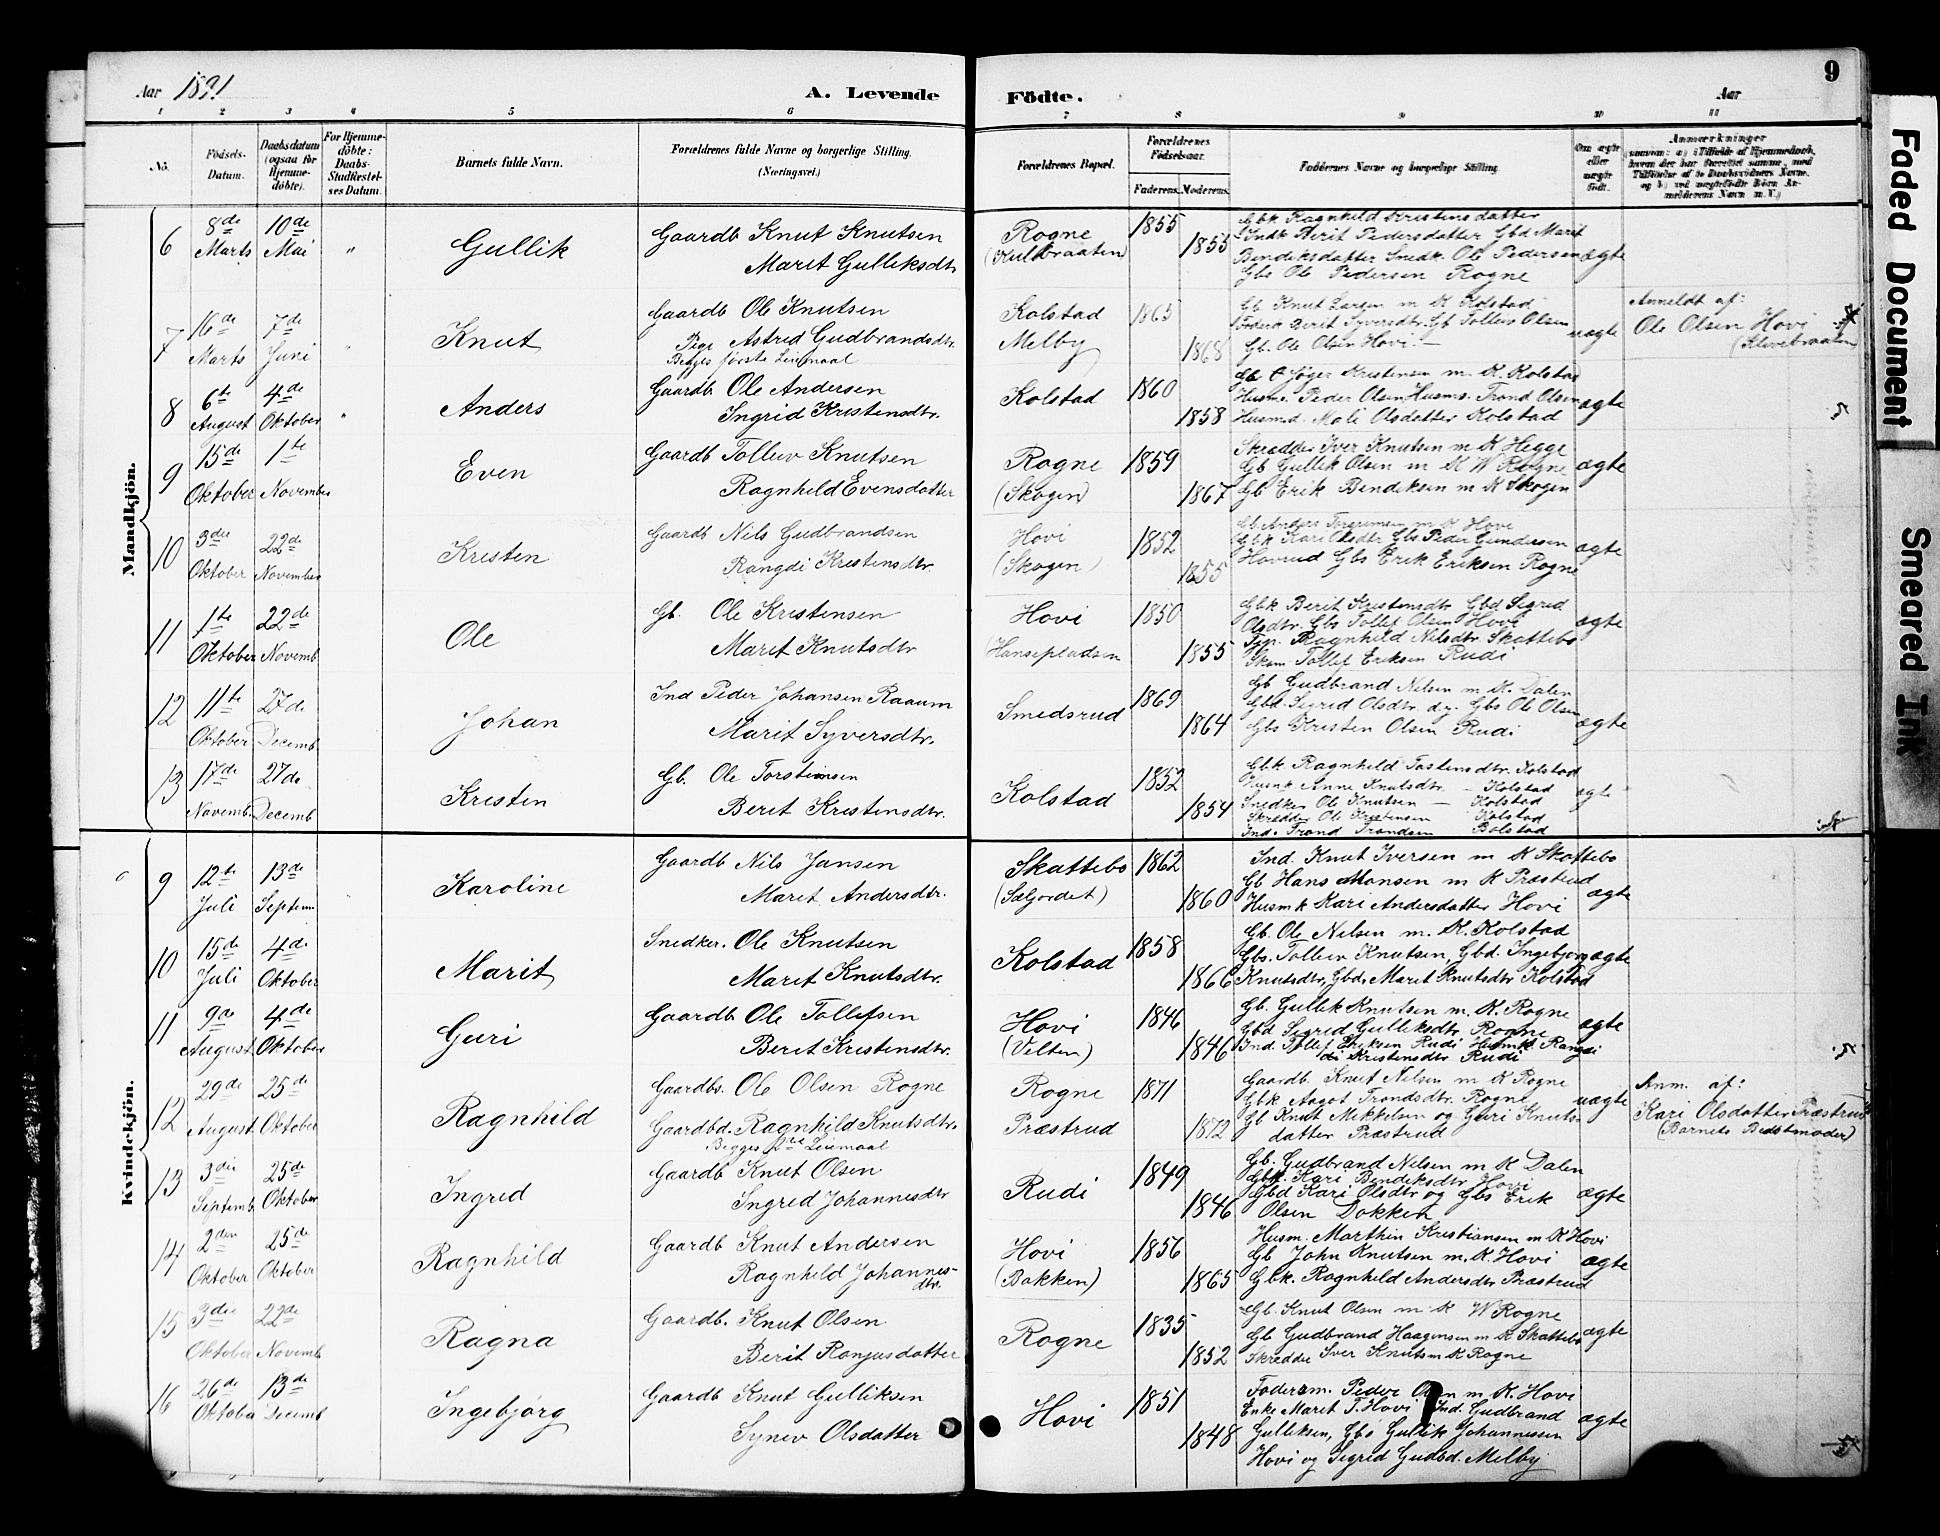 Aar 1891
A. Levende
Födte.
Aar
9
1 2 3 4 5 6 7 8 9 10 11
No.
Födsels-Datum.
Daabsdatum (ogsaa for Hjemme-döbte).
For Hjemme-döbte: Daabs-Stadfæstel-ses Datum.
Barnets fulde Navn.
Forældrenes fulde Navne og borgerlige Stilling. (Næringsvei.)
Forældrenes Bopæl.
Forældrenes Födselsaar.
Faderens. Moderens.
Faddernes Navne og borgerlige Stilling.
Om ægte eller uægte födt.
Anmærkninger
Mandkjön.
6 8de Marts 10de Mai " Gullik
Gaardb Knut Knutsen
Marit Gulliksdtr
Rogne
(Kulbraaten)
1855 1855
Gbk Ragnhild Kristensdatter
Indk Berit Pedersdatter Gbd Marit
Bendiksdatter Snedk. Ole Pedersen
Gbs Ole Pedersen Rogne
ægte
7 16de Marts 7de Juni " Knut
Gaardb Ole Knutsen
Pige Astrid Gudbrandsdtr.
Begges første Leiemaal
Kolstad
Melby
1865 1868
Gb Knut Larsen m K Kolstad
Berit Syversdtr. Gb Tollev Olsen
Gb. Ole Olsen Hovi. —
uægte
Anmeldt af:
Ole Olsen Hovi
8 6te August 4de Oktober " Anders
Gaardb Ole Andersen
Ingrid Kristensdtr.
Kolstad
1860 1858
Kristensen m. K. Kolstad
Husm. Peder Olsen Husms. Trond Olsen
Husmd. Mali Olsdatter Kolstad
ægte
5
9 15de Oktober 1te November Even
Gaardb Tollev Knutsen
Ragnhild Evensdatter
Rogne
(Skogen)
1859 1867
Skrædder Iver Knutsen m K Hegge
Gb Gullik Olsen m K W Rogne
Gb Erik Bendiksen m K Skogen
ægte
10 3die Oktober 22de November Kristen
Gaardb Nils Gudbrandsen
Rangdi Kristensdtr.
Hovi
(Skogen)
1852 1855
Gb Anders Torgrimsen m K Hovi
Gbk Kari Olsdtr Gbs Peder Gundersen
Hovrud Gbs Erik Eriksen Rogne
ægte
11 1te Oktober 22de Novemb Ole
Gb. Ole Kristensen
Marit Knutsdtr
Hovi
(Hansepladsen
1850 1855
Gbk Berit Kristensdtr Gbd Sigrid
Olsdtr. Gbs Tollef Olsen Hovi
Ragnhild Nilsdtr. Skattebo
Tollef Eriksen Rudi
ægte
12 11te Oktober 27de Decemb. Johan
Ind Peder Johansen Raaum
Marit Syversdtr.
Smedsrud
1869 1864
Gb Gudbrand Nilsen m. K. Dalen
Gbd. Sigrid Olsdtr. og Gbs Ole Olsen
Gbs Kristen Olsen Rudi
ægte
13 17de Novemb. 27de Decemb Kristen
Gb. Ole Torstensen
Berit Kristensdtr.
Kolstad
1852 1854
Gbk Ragnhild Tostensdtr. Kolstad
Husmk Anne Knutsdtr. - Kolstad
Snedker Ole Knutsen — Kolstad
Skrædder Ole Kristensen Kolstad
Ind. Trond Trondsen Bolstad
ægte
Kvindekjön.
9 12te Juli 13de Septem Karoline
Gaardb Nils Jansen
Marit Andersdtr.
Skattebo
(Sæljordet)
1862 1860
Ind. Knut Iversen m K Skattebo
Gb Hans Monsen m K Præstrud
Husmk Kari Andersdatter Hovi
ægte
10 15de Juli 4de Oktober Marit
Snedker. Ole Knutsen
Marit Knutsdtr.
Kolstad
1858 1866
Gb. Ole Nilsen m. K. Kolstad
Gbs. Tollev Knutsen, Gbd. Ingebjorg
Knutsdtr, Gbd. Marit Knutsdtr Kolstad
ægte
11 9de August 4de Oktober Guri
Gaardb Ole Tollefsen
Berit Kristensdtr.
Hovi
(Velten)
1846 1846
Gb. Gullik Knutsen m. K. Rogne
Gbd Sigrid Gulliksdtr Rogne
Ind. Tollef Eriksen Rudi Husmk Rang
di Kristensdtr Rudi
ægte
5
12 29de August 25de Oktober Ragnhild
Gaardbs. Ole Olsen Rogne
Gaardbd. Ragnhild Knutsdtr.
Begges 1ste Leiemaal
Rogne
Præstrud
1871 1872
Gaardb. Knut Nilsen m K Rogne
Gbk Aagot Trondsdtr. Rogne
Gb Knut Mikkelsen og Guri Knuts-
datter Præstrud
uægte
Anm. af:
Kari Olsdatter Præstrud
(Barnets Bedstemoder)
13 3die Septemb. 25de Oktober Ingrid
Gaardb Knut Olsen
Ingrid Johannesdtr
Rudi
1849 1846
Gb. Gudbrand Nilsen m K Dalen
Gbk. Kari Bendiksdtr Hovi
Gbd Kari Olsdtr og Gbs Erik
Olsen Dokken
ægte
14 2den Oktober 25de Oktober Ragnhild
Gaardb Knut Andersen
Ragnhild Johannes-
dtr.
Hovi
(Bakken)
1856 1865
Husm. Marthin Kristiansen m K Hovi
Gb John Knutsen m. K. Hovi
Gbk. Ragnhild Andersdtr Præstrud
ægte
15 3die Oktober 22de Novemb Ragna
Gaardb. Knut Olsen
Berit Ronjusdatter
Rogne
1835 1852
Gb. Knut Olsen m K W Rogne
Gb Gudbrand Haagensen m K Skattebo
Skrædder Iver Knuts m K Rogne
ægte
16 26de Oktober 13de Decemb Ingebjørg
Gaardb Knut Gulliksen
Synev Olsdatter
Hovi
1851 1848
Foderm. Peder Olsen m K. Hovi
Enke Marit T. Hovi Ind. Gudbrand
Gulliksen, Gbs Gullik Johannessen
Hovi og Sigrid Gudbd. Melby
ægte
Faded Document
Smeared Ink